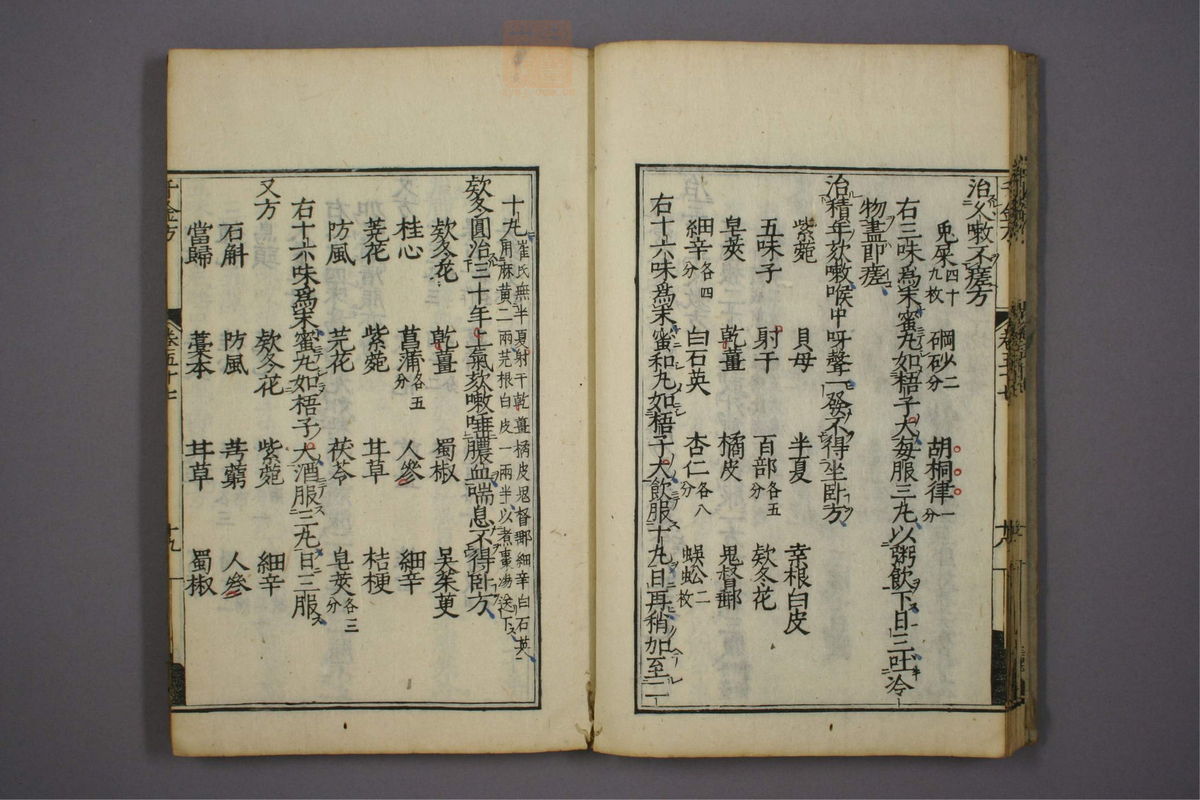 治久嗽不瘥方
兎屎四十九枚 碙砂二分 胡桐律一分
右三味爲末蜜丸如梧子大每服三丸以粥飲下日三吐冷
物盡即瘥
治積年欬嗽喉中呀聲一發不得坐臥方
紫菀 貝母 半夏 桒根白皮
五味子 射干 百部各五分 欬冬花
皂莢 乾薑 橘皮 鬼督郵
細辛各四分 白石英 杏仁各八分 蜈蚣二枚
右十六味爲末蜜和丸如梧子大飲服十丸日再稍加至二
十丸崔氏無半夏射干乾薑橘皮鬼督郵細辛白石英
用麻黄二兩芫根白皮一兩半以煮棗湯送下
欬冬圓治三十年上氣欬嗽唾膿血喘息不得臥方
欬冬花 乾薑 蜀椒 吳茱萸
桂心 菖蒲各五分 人參 細辛
蕘花 紫菀 茸草 桔梗
防風 芫花 茯苓 皂莢各三分
右十六味爲末蜜丸如梧子大酒服三丸日三服
又方 欬冬花 紫菀 細辛
石斛 防風 芎藭 人參
當歸 藁本 茸草 蜀椒
千金方 卷五十七 十九